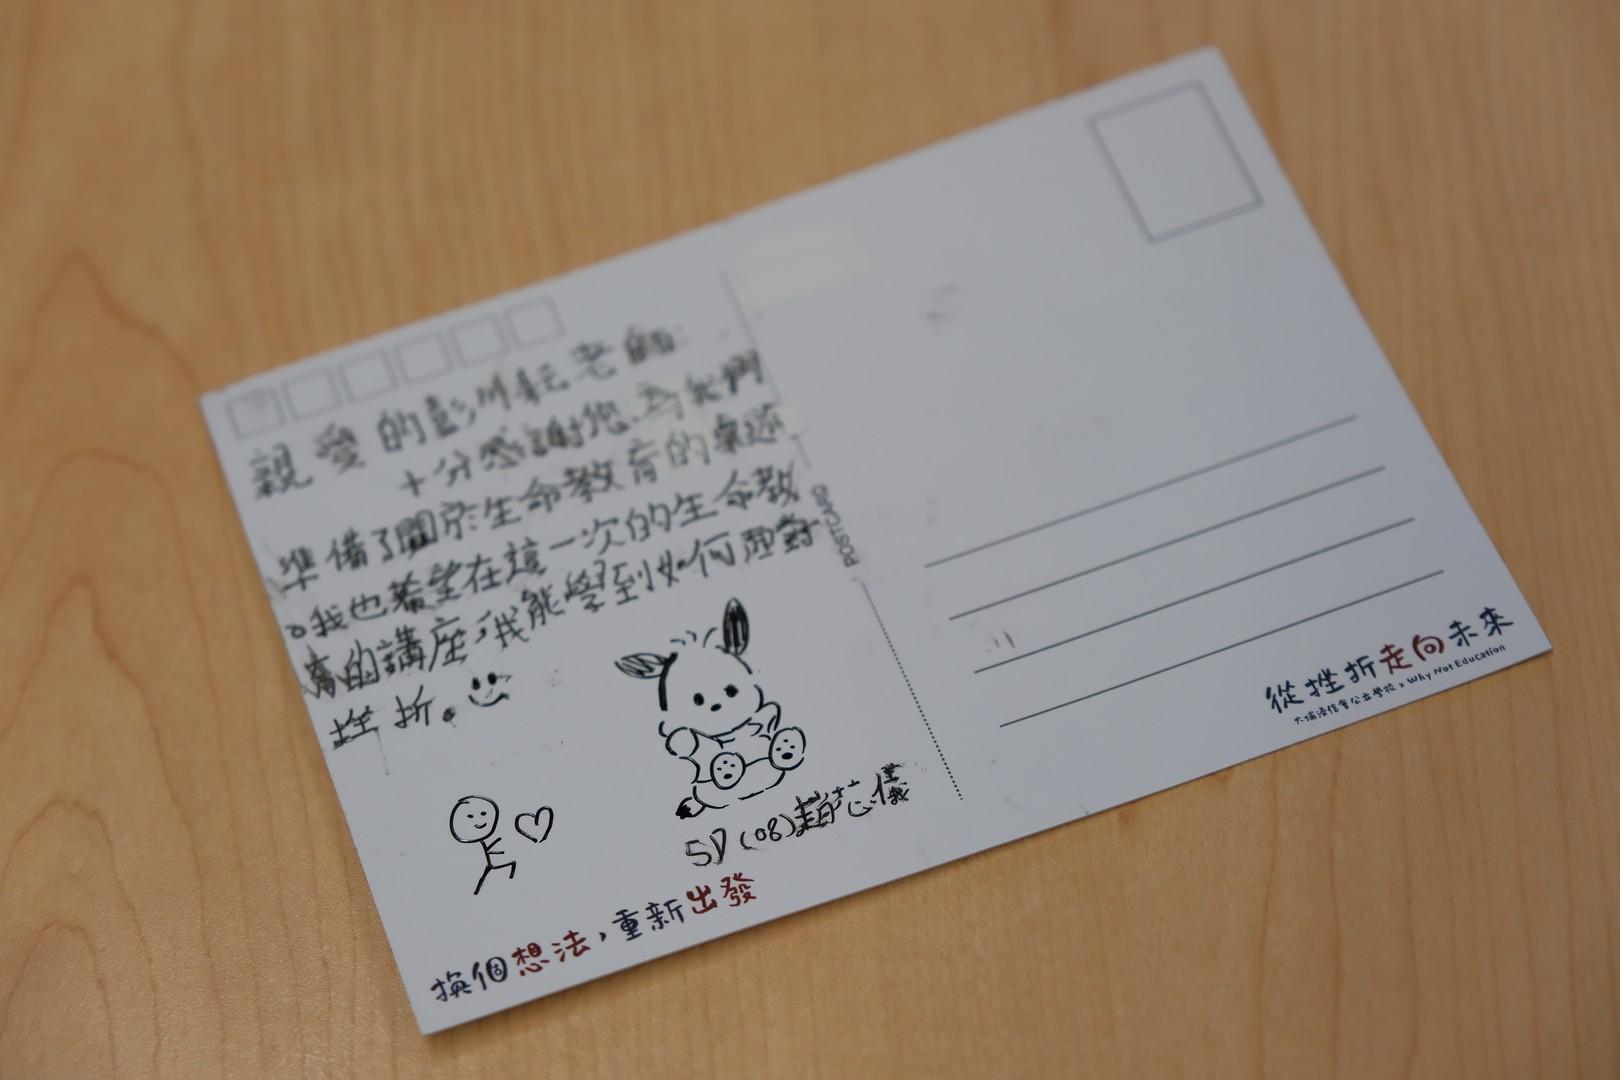 親愛的彭川耘老師:
十分感謝您為我們
準備了關於生命教育的桌遊
。我也希望在這一次的生命教
育的講座,我能學到如何面對
挫折。
5D(08)趙芯儀
換個想法,重新出發
POSTCARD
從挫折走向未來
大埔浸信會公立學校 x Why Not Education